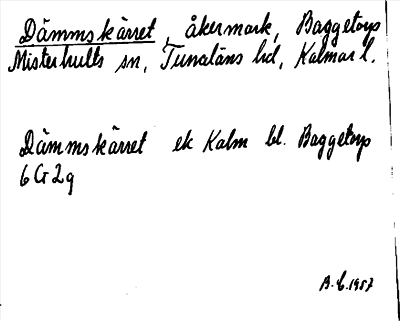 Dämmskärret, åkermark, Baggetorp
Misterhults sn, Tunaläns hd, Kalmar l.
Dämmskärret ek Kalm bl. Baggetorp
6 G 2 g
A. E. 1957